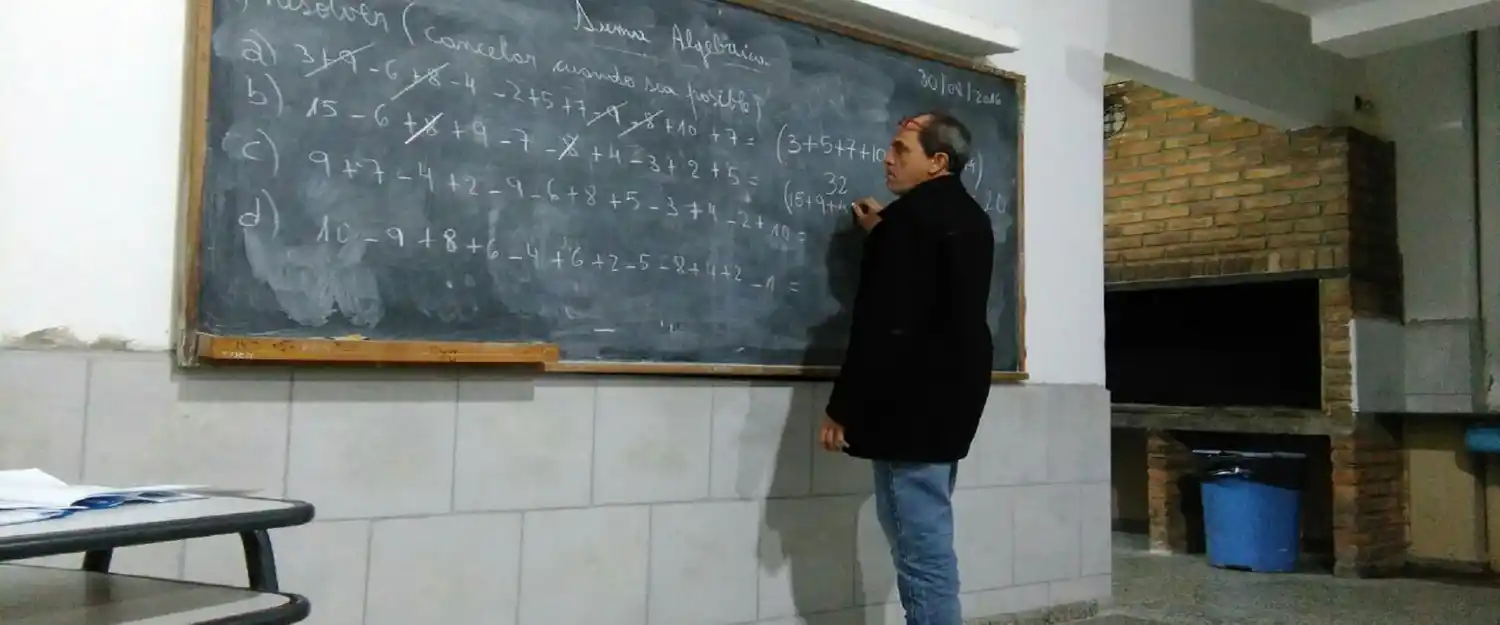 Suma Algebraica
Resolver (cancelar cuando sea posible)
30/08/2016
a) 3+9-6+8-4-2+5+7-9-8+10+7= (3+5+7+10
32
20
b) 15-6+8+9-7-8+4-3+2+5= (15+9+4
c) 9+7-4+2-9-6+8+5-3+4-2+10=
d) 10-9+8+6-4+6+2-5-8+4+2-1=